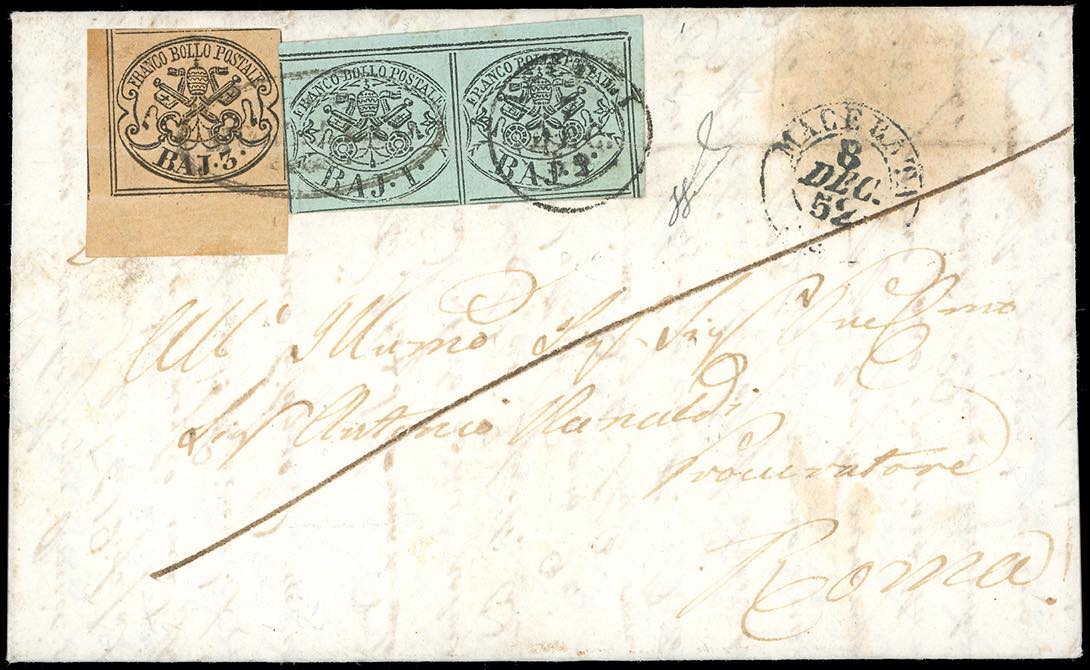 FRANCO BOLLO POSTALE
BAJ. 3.
FRANCO BOLLO POSTALE
BAJ. 1.
FRANCO BOLLO POSTALE
BAJ. 1.
MACERATA
8
DEC.
52
All' Illumo Sigr Sigr
Sigr Antonio Ranaldi
Procuratore
Roma